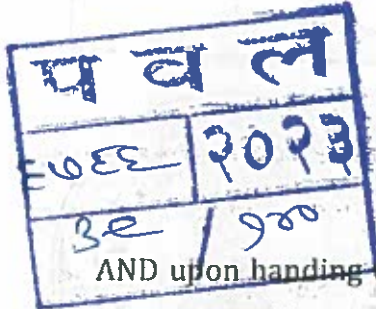 प व ल
६७६६ २०२३
३९ / १००
AND upon handing